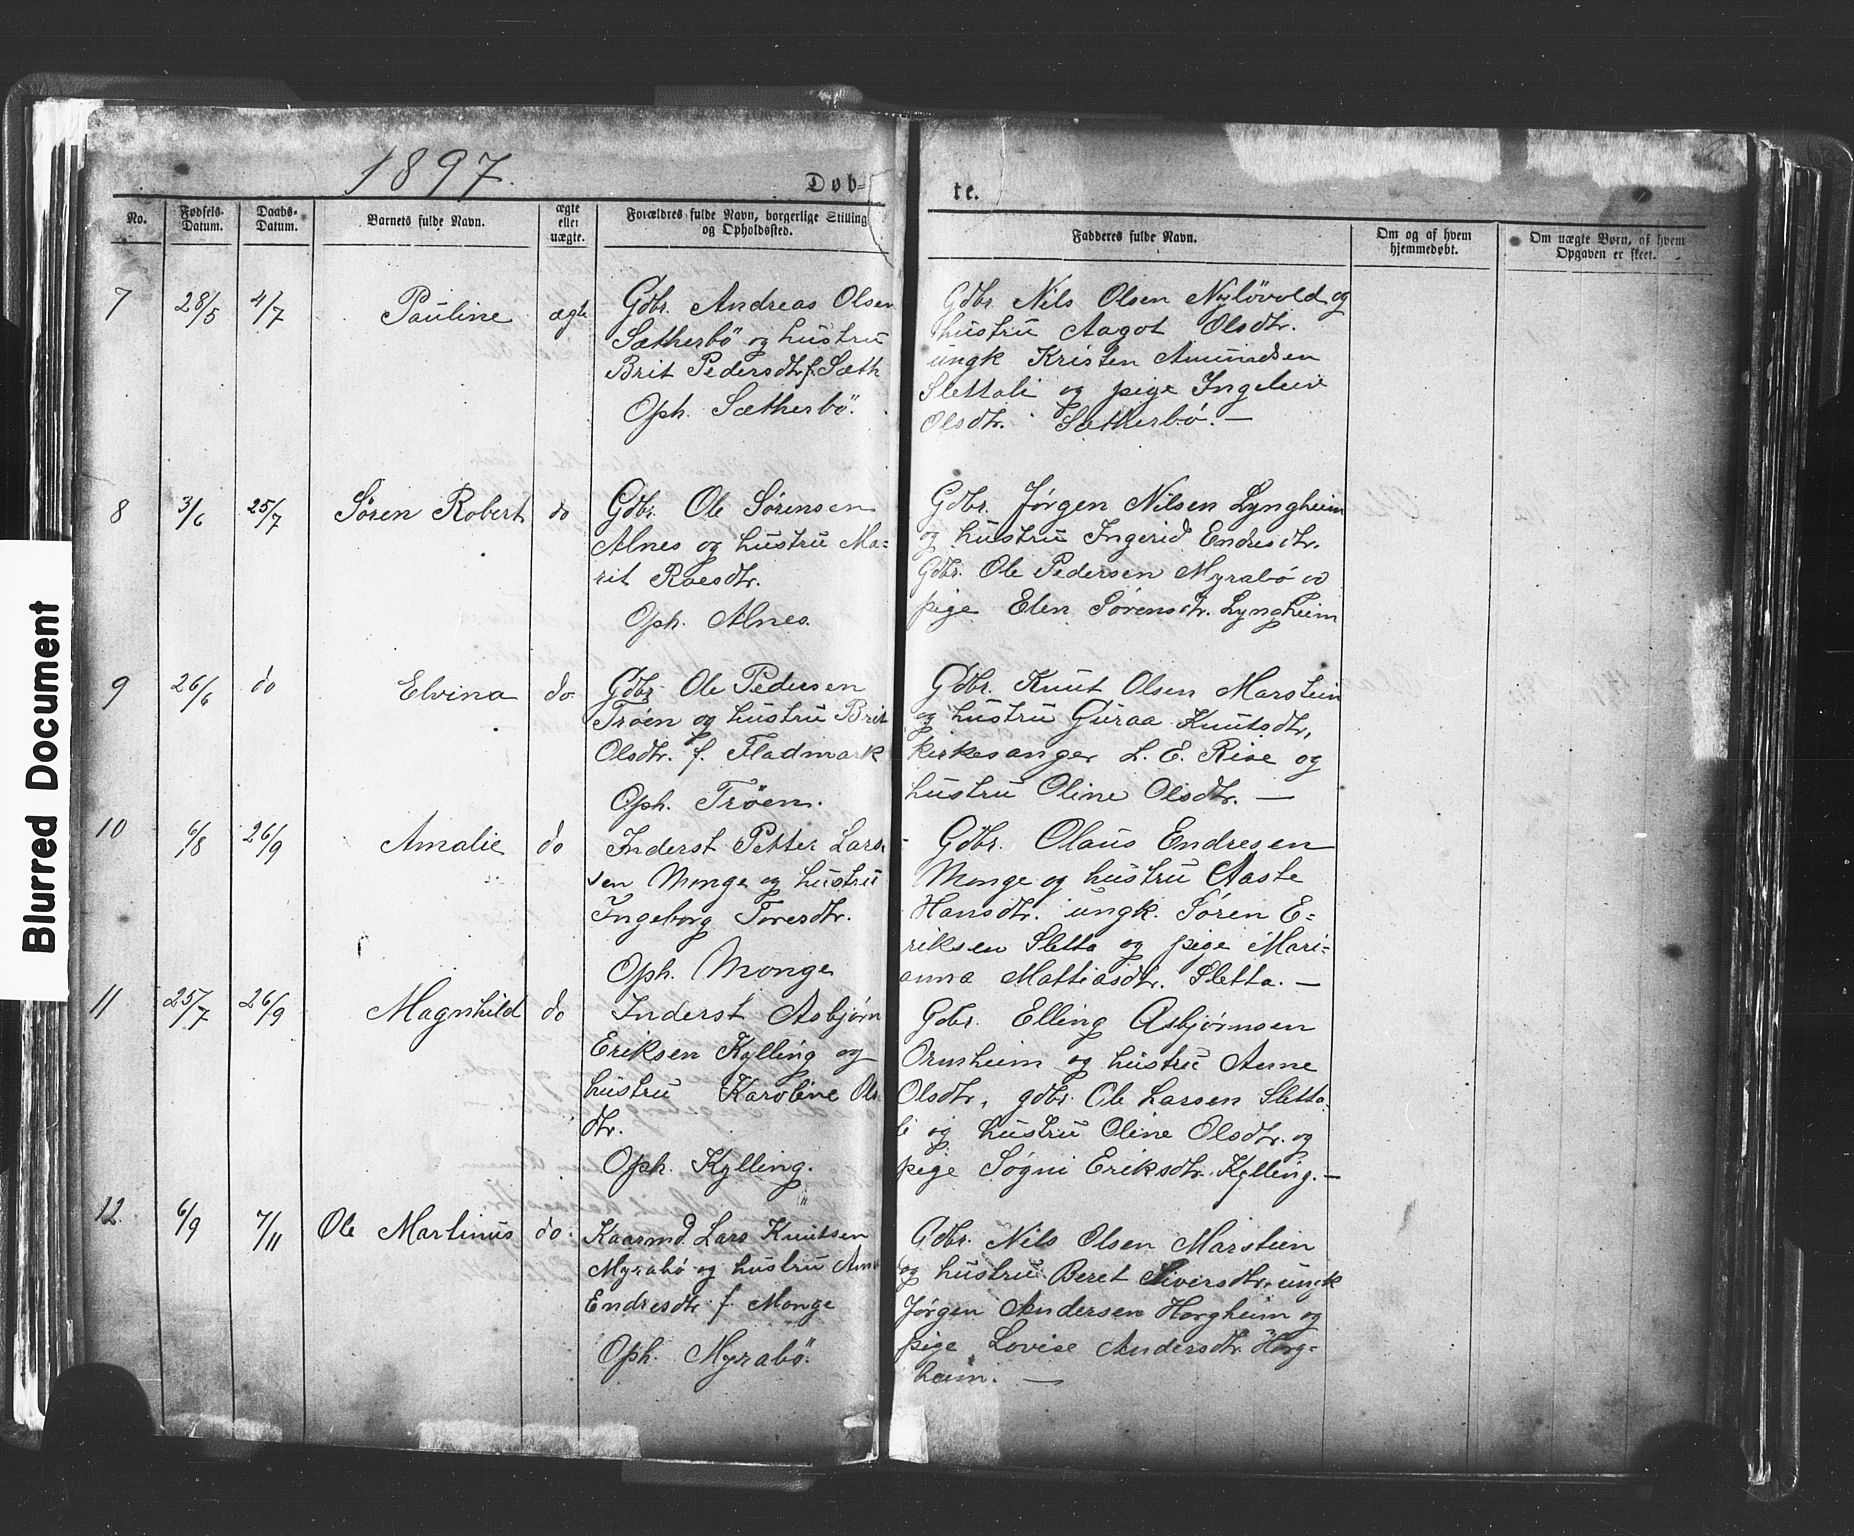 1897.
Døb-
te.
No.
Fødsels-
Datum.
Daabs-
Datum.
Barnets fulde Navn.
ægte
eller
uægte.
Forældres fulde Navn, borgerlige Stilling
og Opholdssted.
Fadderes fulde Navn.
Om og af hvem
hjemmedøbt.
Om uægte Børn, af hvem
Opgaven er skeet.
7
28/5
4/7
Pauline
ægte
Gdbr. Andreas Olsen
Sætherbö og hustru
Brit Pedersdtr f. Sæth
Oph. Sætherbö.
Gdbr. Nils Olsen Nyløvold og
hustru Aagot Olsdtr.
ungk Kristen Amundsen
Slettali og pige Ingeleiv
Olsdtr. Sætherbó. —
8
3/6
25/7
Sören Robert
do
Gdbr. Ole Sørensen
Alnes og hustru Ma=
rit Roesdtr.
Oph. Alnes.
Gdbr. Jørgen Nilsen Lyngheim
og hustru Ingerid Endresdtr.
Gdbr. Ole Pedersen Myrabó o
pige Elen Sørensdtr. Lyngheim
9
26/6
do
Elvina
do
Gdbr Ole Pedersen
Tröen og hustru Brit
Olsdtr. f. Fladmark
Oph. Tröen.
Gdbr. Knut Olsen Marstein
og hustru Guraa Knutsdtr,
kirkesanger L. E. Rise og
hustru Oline Olsdtr. —
10
6/8
26/9
Amalie
do
Inderst Petter Lars-
sen Monge og hustru
Ingeborg Toresdtr.
Oph. Monge
Gdbr. Olaus Endresen
Monge og hustru Aaste
Hansdtr. ungk. Sören E=
riksen Sletta og pige Mari=
anna Mattiasdtr. Sletta. —
11
25/7
26/9
Magnhild
do
Inderst Asbjørn
Eriksen Kylling og
hustru Karoline Ols
dtr.
Oph. Kylling.
Gdbr. Elling Asbjørnsen
Ormheim og hustru Anne
Olsdtr, gdbr. Ole Larsen Sletta
li og hustru Oline Olsdtr. og
pige Sögni Eriksdtr. Kylling. —
12.
6/9
7/11
Ole Martinus
do.
Kaarmd. Lars Knutsen
Myrabó og hustru Ane
Endresdtr f. Monge
Oph. Myrabö.
Gdbr. Nils Olsen Marstein
og hustru Beret Siversdtr. ungk
Jørgen Andersen Horgheim og
pige Lovise Andersdtr. Horg=
heim. —
Blurred Document